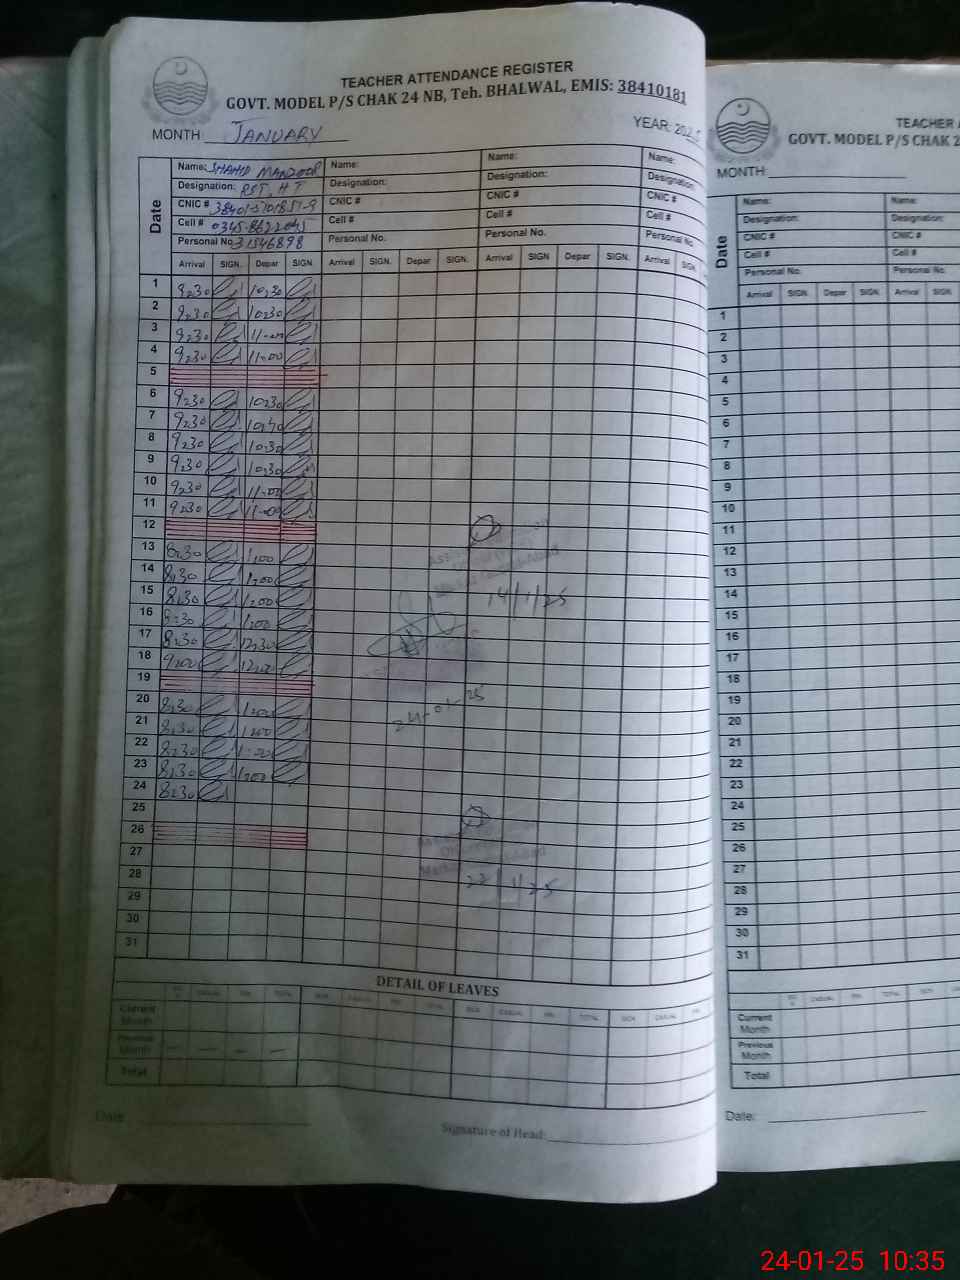 TEACHER ATTENDANCE REGISTER
GOVT. MODEL P/S CHAK 24 NB, Teh. BHALWAL, EMIS: 38410181
MONTH JANUARY YEAR: 202
Date
Name: SHAHID MANZOOR Name: Name: Name:
Designation: PST, HT Designation: Designation: Designation:
CNIC # CNIC # CNIC # CNIC #
Cell # Cell # Cell # Cell #
Personal No. 31546898 Personal No. Personal No. Personal No.
Arrival SIGN. Depar SIGN Arrival SIGN. Depar SIGN. Arrival SIGN Depar SIGN. Arrival SIGN.
1 9:30 10:30
2 9:30 10:30
3 9:30 11:00
4 9:30 11:00
5
6 9:30 10:30
7 9:30
8 9:30 10:30
9 9:30 10:30
10 9:30 11:00
11 9:30 11:00
12
13 8:30 1:00
14 8:30 1:00
15 8:30 1:00
16 8:30 1:00
17 8:30 12:30
18 9:00 12:00
19
20 8:30 1:00
21 8:30 1:00
22 8:30 1:00
23 8:30 1:00
24 8:30
25
26
27
28
29
30
31
14/1/25
24-01-25
22/1/25
DETAIL OF LEAVES
CASUAL TOTAL SICK CASUAL TOTAL SICK CASUAL TOTAL SICK CASUAL
Current Month
Previous Month — — — —
Total
Date
Signature of Head:
TEACHER
GOVT. MODEL P/S CHAK 2
MONTH:
Date
Name: Name:
Designation: Designation:
CNIC # CNIC #
Cell # Cell #
Personal No. Personal No.
Arrival SIGN. Depar SIGN. Arrival SIGN.
1
2
3
4
5
6
7
8
9
10
11
12
13
14
15
16
17
18
19
20
21
22
23
24
25
26
27
28
29
30
31
CASUAL TOTAL SICK CASUAL
Current Month
Previous Month
Total
Date:
24-01-25 10:35